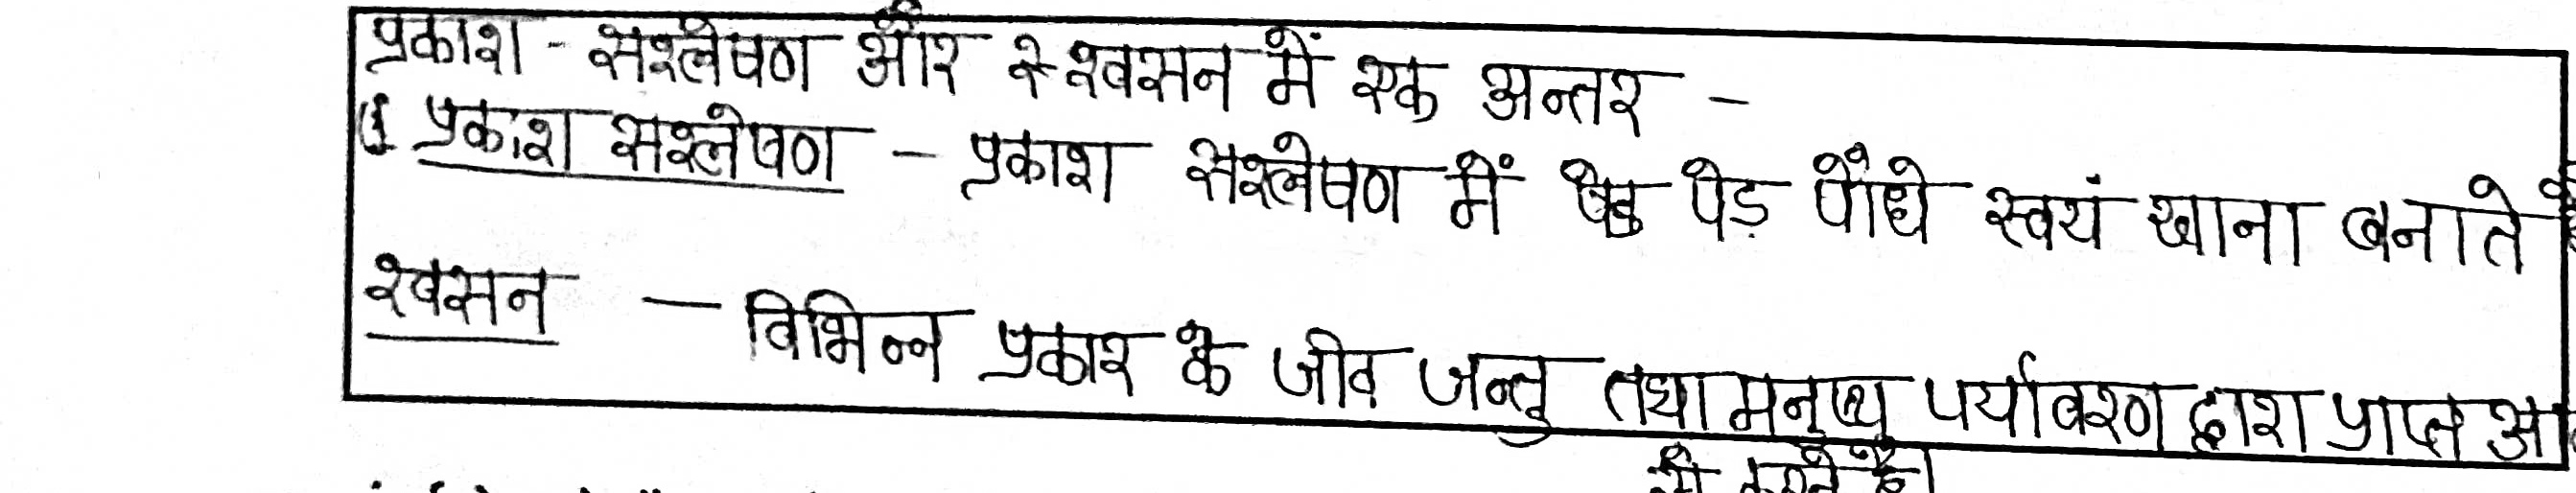 प्रकाश - सश्लेषण और श्वसन में एक अन्तर -
प्रकाश सश्लेषण - प्रकाश सश्लेषण में पेड़ पौधे स्वयं खाना बनाते
श्वसन - विभिन्न प्रकार के जीव जन्तु तथा मनुष्य पर्यावरण द्वारा प्राप्त